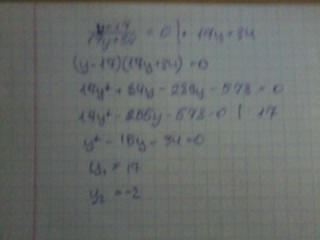 (y-17)/(17y+34) = 0 | · 17y+34
(y-17)(17y+34)=0
17y² + 34y - 289y - 578 = 0
17y² - 255y - 578 = 0 | : 17
y² - 15y - 34 = 0
y₁ = 17
y₂ = -2